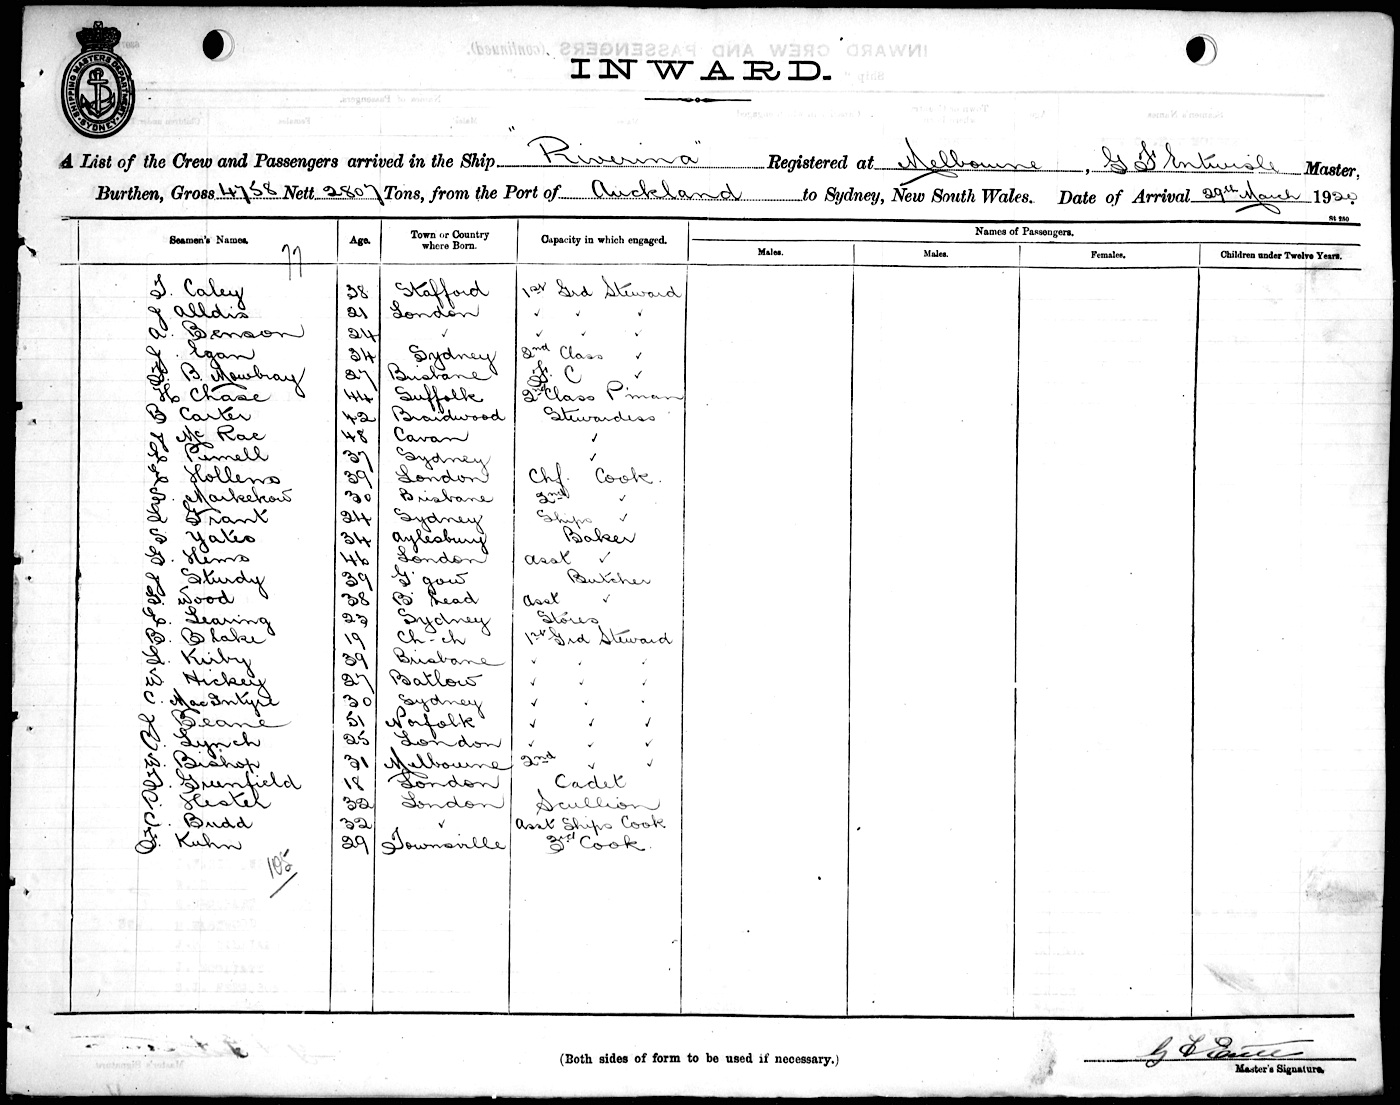 SHIPPING MASTERS DEPARTMENT SYDNEY
INWARD.
A List of the Crew and Passengers arrived in the Ship "Riverina" Registered at Melbourne, G F Entwisle Master,
Burthen, Gross 4758 Nett 2807 Tons, from the Port of Auckland to Sydney, New South Wales. Date of Arrival 29th March 1920
St 280
Seamen's Names. Age. Town or Country where Born. Capacity in which engaged. Names of Passengers.
Males. Males. Females. Children under Twelve Years.
77
Caley 38 Stafford 1st Grd Steward
J Alldis 21 London ✓ ✓ ✓
A. Benson 24 ✓ ✓ ✓ ✓
J. Egan 34 Sydney 2nd Class ✓
B. Mowbray 27 Brisbane C ✓
H Chase 44 Suffolk 2nd Class P'man
B Carter 42 Braidwood Stewardess
Mc Rae 48 Cavan ✓
Purnell 37 Sydney ✓
Hollems 39 London Chf. Cook.
30 Brisbane 2nd ✓
Grant 24 Sydney Ships ✓
Yates 34 Aylesbury Baker
Hems 46 London Asst ✓
Sturdy 39 G'gow Butcher
Wood 38 B'head Asst ✓
Gearing 23 Sydney Stores
B. Blake 19 Ch-ch 1st Grd Steward
L. Kirby 39 Brisbane ✓ ✓ ✓
Hickey 27 Batlow ✓ ✓ ✓
C. MacIntyre 30 Sydney ✓ ✓ ✓
Beane 51 Norfolk ✓ ✓ ✓
Lynch 25 London ✓ ✓ ✓
Bishop 31 Melbourne 2nd ✓ ✓
Grunfield 18 London Cadet
Hester 32 London Scullion
Budd 32 ✓ Asst Ships Cook
Kuhn 29 Townsville 3rd Cook.
105
(Both sides of form to be used if necessary.)
Master's Signature.